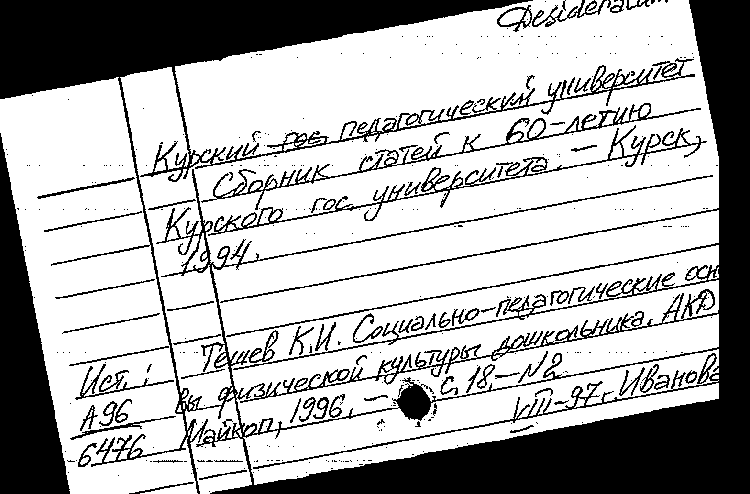 Desideratum
Курский гос. педагогический университет
Сборник статей к 60-летию
Курского гос. университета. — Курск,
1994.
Ист.: Тешев К.И. Социально-педагогические осно
А96 вы физической культуры дошкольника. АКД
6476 Майкоп, 1996. — с. 18. — №2
VIII-97г. Иванова